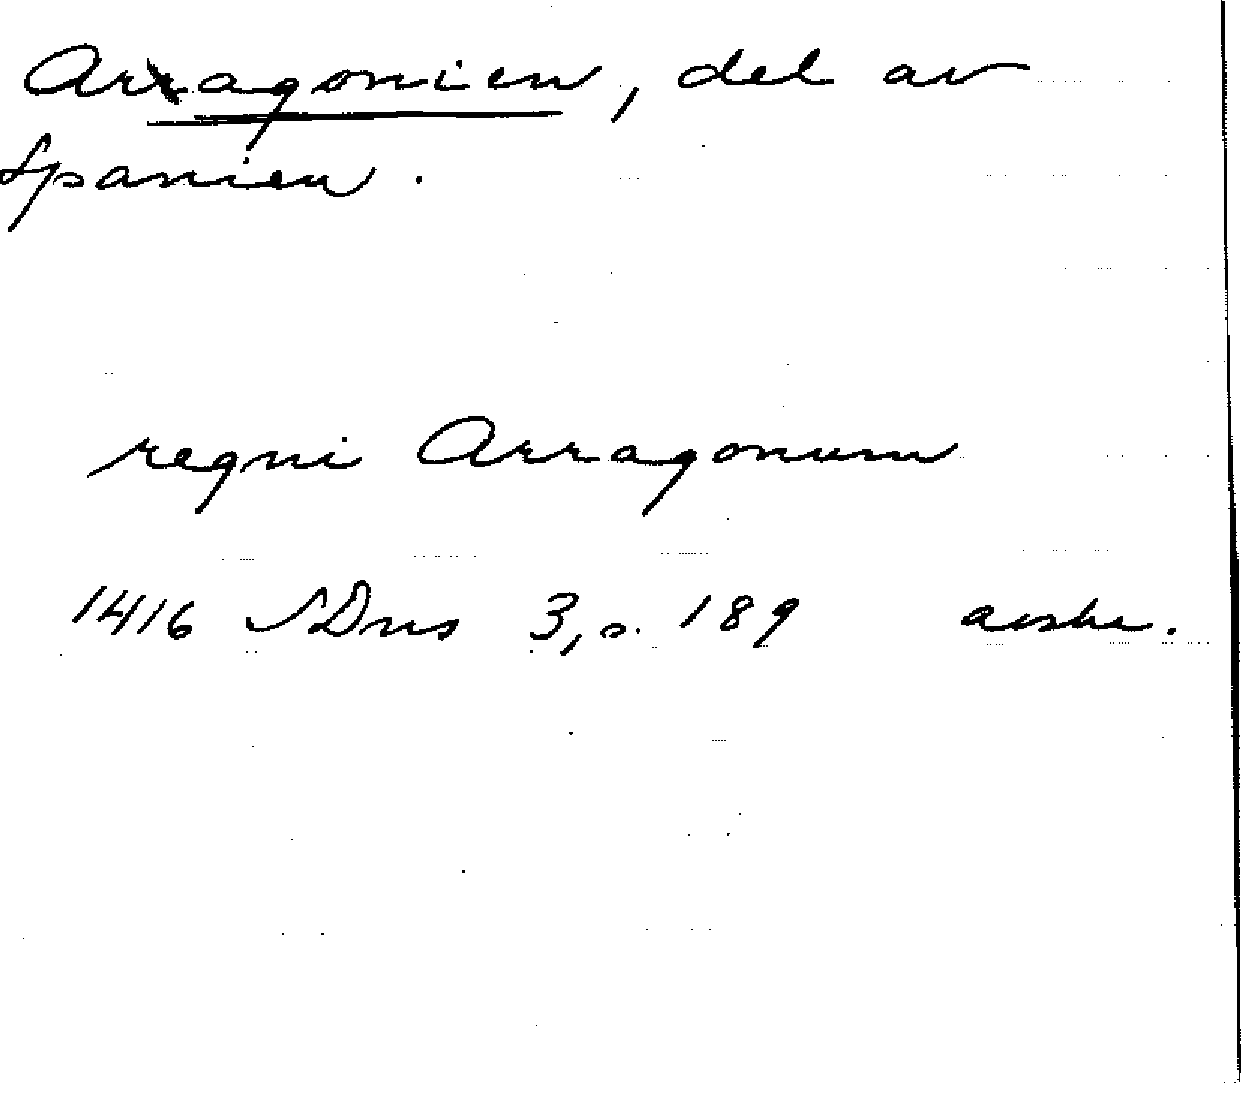 Aragonien, del av
Spanien.
regni Arragonum
1416 SDns 3, s. 189 avskr.